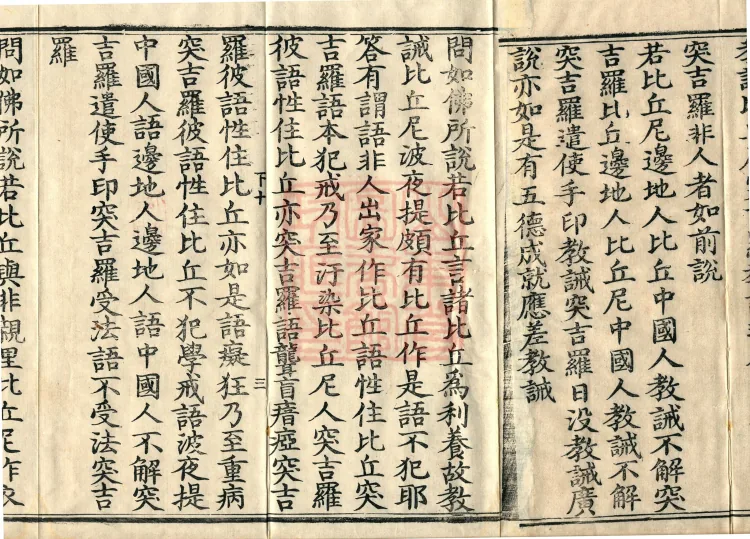 突吉羅非人者如前說
若比丘尼邊地人比丘中國人教誡不解突
吉羅比丘邊地人比丘尼中國人教誡不解
突吉羅遣使手印教誡突吉羅日没教誡廣
說亦如是有五德成就應差教誡
問如佛所說若比丘言諸比丘為利養故教
誡比丘尼波夜提頗有比丘作是語不犯耶
答有謂語非人出家作比丘語性住比丘突
吉羅語本犯戒乃至汙染比丘尼人突吉羅
彼語性住比丘亦突吉羅語聾盲瘖瘂突吉
下十
三
羅彼語性住比丘亦如是語癡狂乃至重病
突吉羅彼語性住比丘不犯學戒語波夜提
中國人語邊地人邊地人語中國人不解突
吉羅遣使手印突吉羅受法語不受法突吉
羅
問如佛所說若比丘與非親里比丘尼作衣